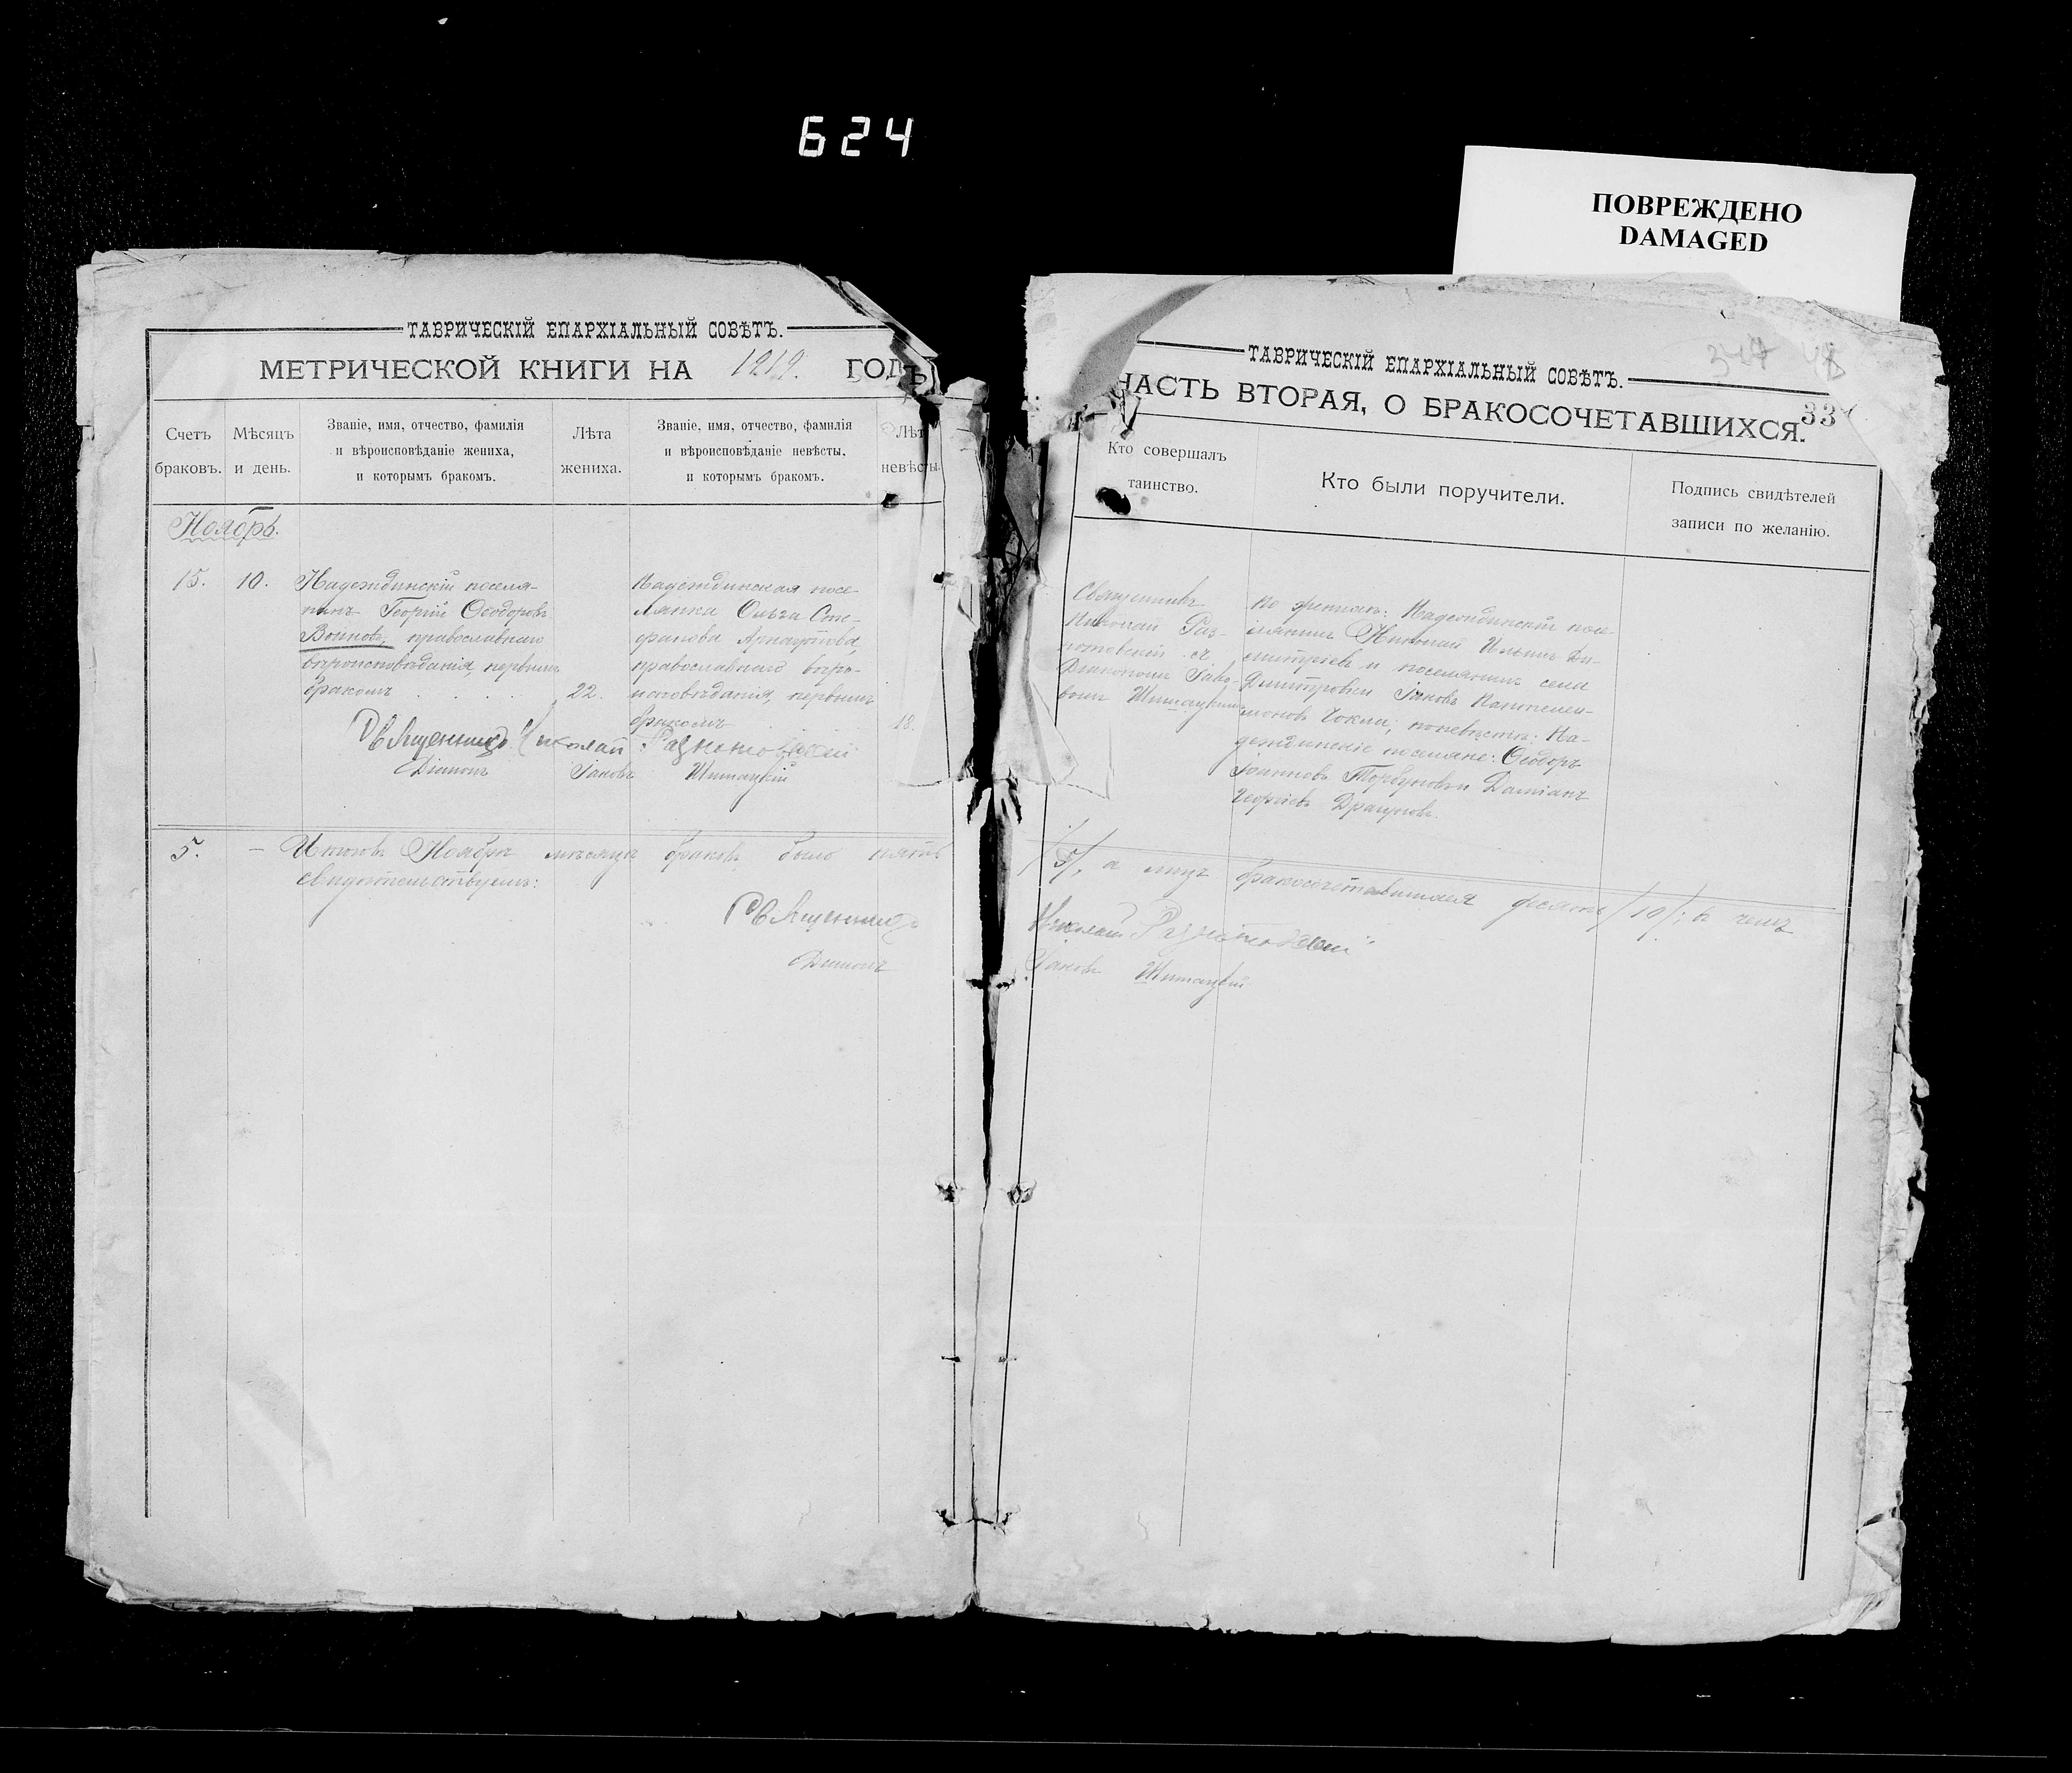 624
ПОВРЕЖДЕНО
DAMAGED
ТАВРИЧЕСКІЙ ЕПАРХІАЛЬНЫЙ СОВѢТЪ.
МЕТРИЧЕСКОЙ КНИГИ НА 1919. ГОДЪ
Счетъ браковъ.
Мѣсяцъ и день.
Званіе, имя, отчество, фамилія
и вѣроисповѣданіе жениха,
и которымъ бракомъ.
Лѣта жениха.
Званіе, имя, отчество, фамилія
и вѣроисповѣданіе невѣсты,
и которымъ бракомъ.
Лѣт
невѣсты.
Ноябрь.
15.
10.
Надеждинскій поселя-
нинъ Георгій Ѳеодоровъ
Войновъ, православнаго
вѣроисповѣданія, первымъ
бракомъ
22.
Надеждинская посе
лянка Ольга Сте-
фанова Арнаутова,
православнаго вѣро-
исповѣданія, первымъ
бракомъ
18.
Священникъ Николай
Діаконъ Іаковъ Шитацкій
5. — Итого въ Ноябрѣ мѣсяцѣ браковъ было пять
свидѣтельствуемъ:
Священникъ
Діаконъ
ТАВРИЧЕСКІЙ ЕПАРХІАЛЬНЫЙ СОВѢТЪ.
ЧАСТЬ ВТОРАЯ, О БРАКОСОЧЕТАВШИХСЯ.
33
Кто совершалъ
таинство.
Кто были поручители.
Подпись свидѣтелей
записи по желанію.
Священникъ
Николай Раз-
съ
Діакономъ Іако-
вомъ
по женихѣ: Надеждинскій посе-
лянинъ Николай Ильинъ Ди-
митріевъ и поселянинъ села
Дмитровки Іаковъ Пантелеи-
моновъ Чокли; по невѣстѣ: На-
деждинскіе поселяне: Ѳеодоръ
Іоанновъ Торбуновъ и Даміанъ
Георгіевъ Драгуновъ.
/5/, а лицъ бракосочетавшихся десять /10/; въ чемъ
Николай
Іаковъ Шитацкій